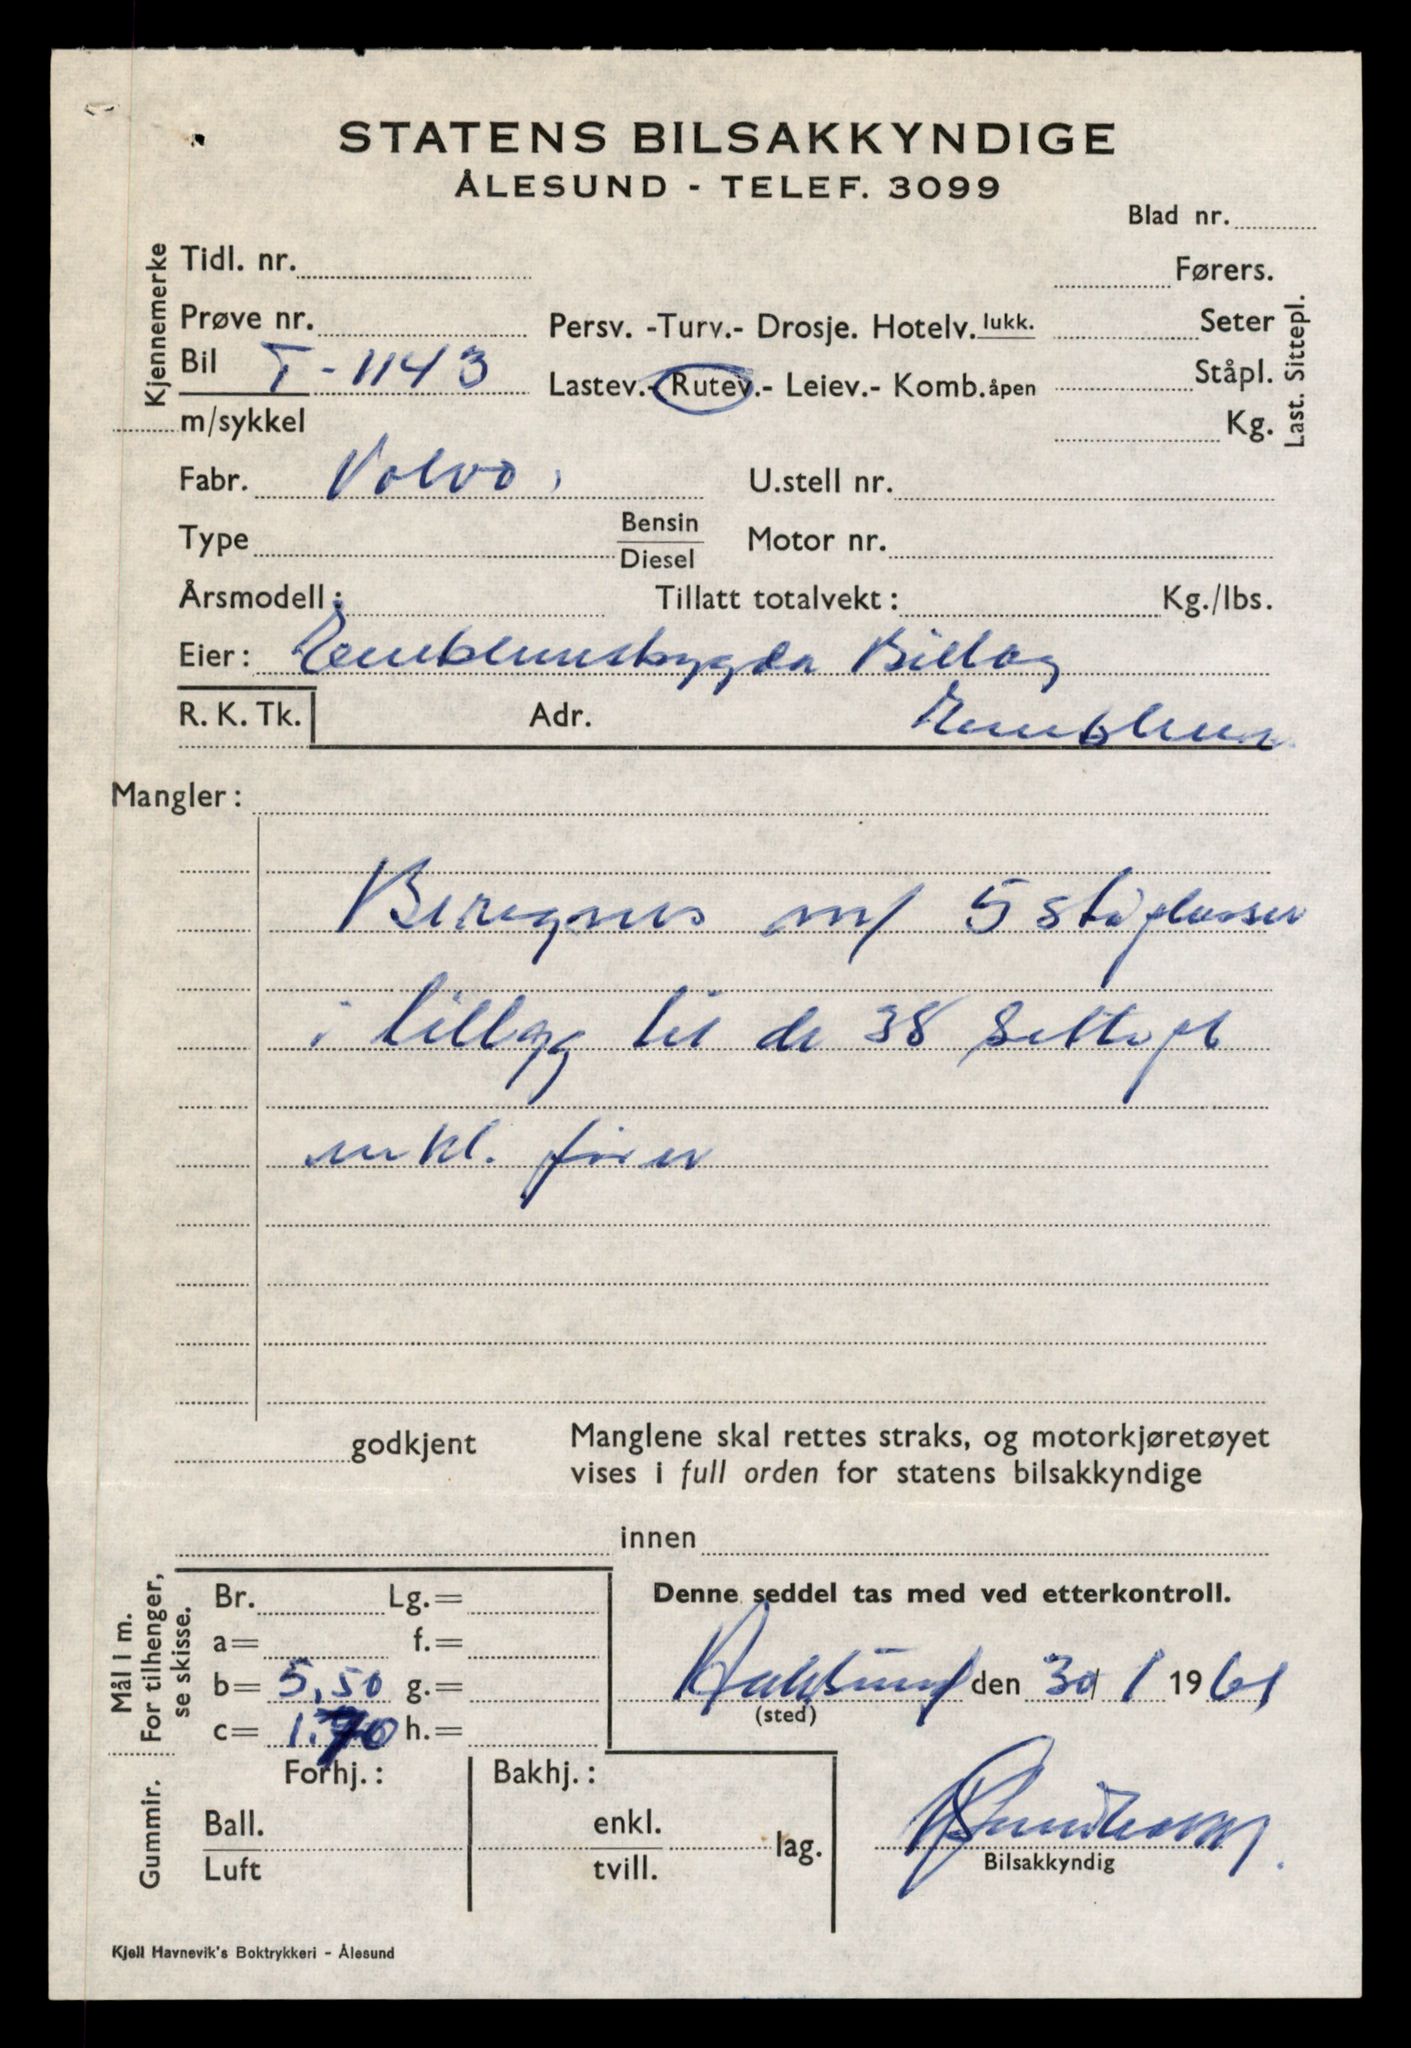 STATENS BILSAKKYNDIGE
ÅLESUND - TELEF. 3099
Blad nr.
Kjennemerke
Tidl. nr.
Førers.
Prøve nr.
Persv. -Turv.- Drosje. Hotelv. lukk.
Seter
Bil T-1143
Lastev.- Rutev.- Leiev.- Komb. åpen
Ståpl.
m/sykkel
Kg.
Last. Sittepl.
Fabr. Volvo
U.stell nr.
Type Bensin
Diesel
Motor nr.
Årsmodell: Tillatt totalvekt: Kg./lbs.
Eier: Emblemsbygda Billag
R. K. Tk. Adr. Emblem
Mangler:
Beregnes m/ 5 ståplasser
i tillegg til de 38 sittepl
inkl. fører
godkjent
Manglene skal rettes straks, og motorkjøretøyet
vises i full orden for statens bilsakkyndige
innen
Mål i m.
For tilhenger,
se skisse.
Br. Lg.=
a= f.=
b= 5,50 g.=
c= 1.70 h.=
Denne seddel tas med ved etterkontroll.
den 30/1 1961
(sted)
Gummir.
Forhj.: Bakhj.:
Ball. enkl.
lag.
Luft tvill.
Bilsakkyndig
Kjell Havnevik's Boktrykkeri - Ålesund